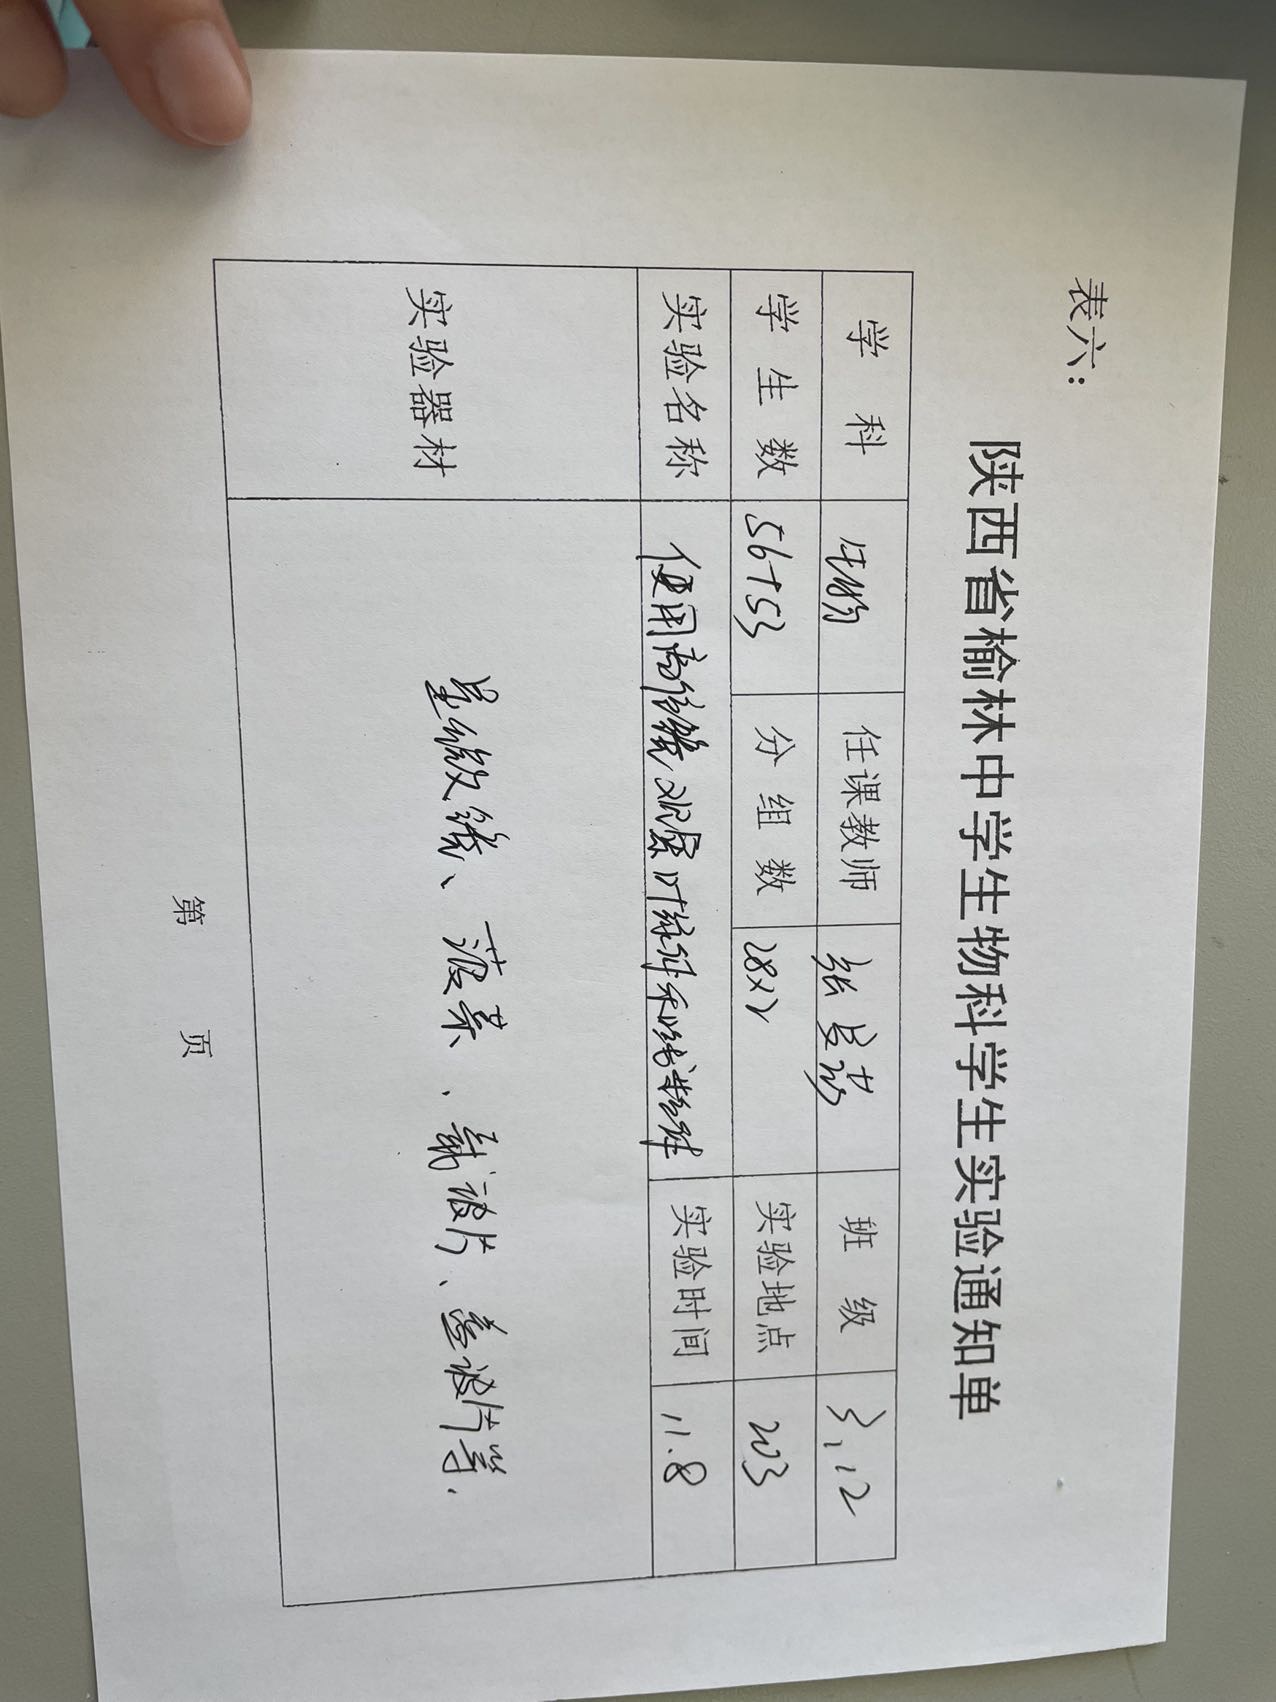 表六：
陕西省榆林中学生物科学生实验通知单
学科 生物 任课教师 张 班级 3、12
学生数 56+53 分组数 28×2 实验地点 203
实验名称 使用高倍镜观察叶绿体和线粒体 实验时间 11.8
实验器材 显微镜、菠菜、载玻片、盖玻片等.
第 页